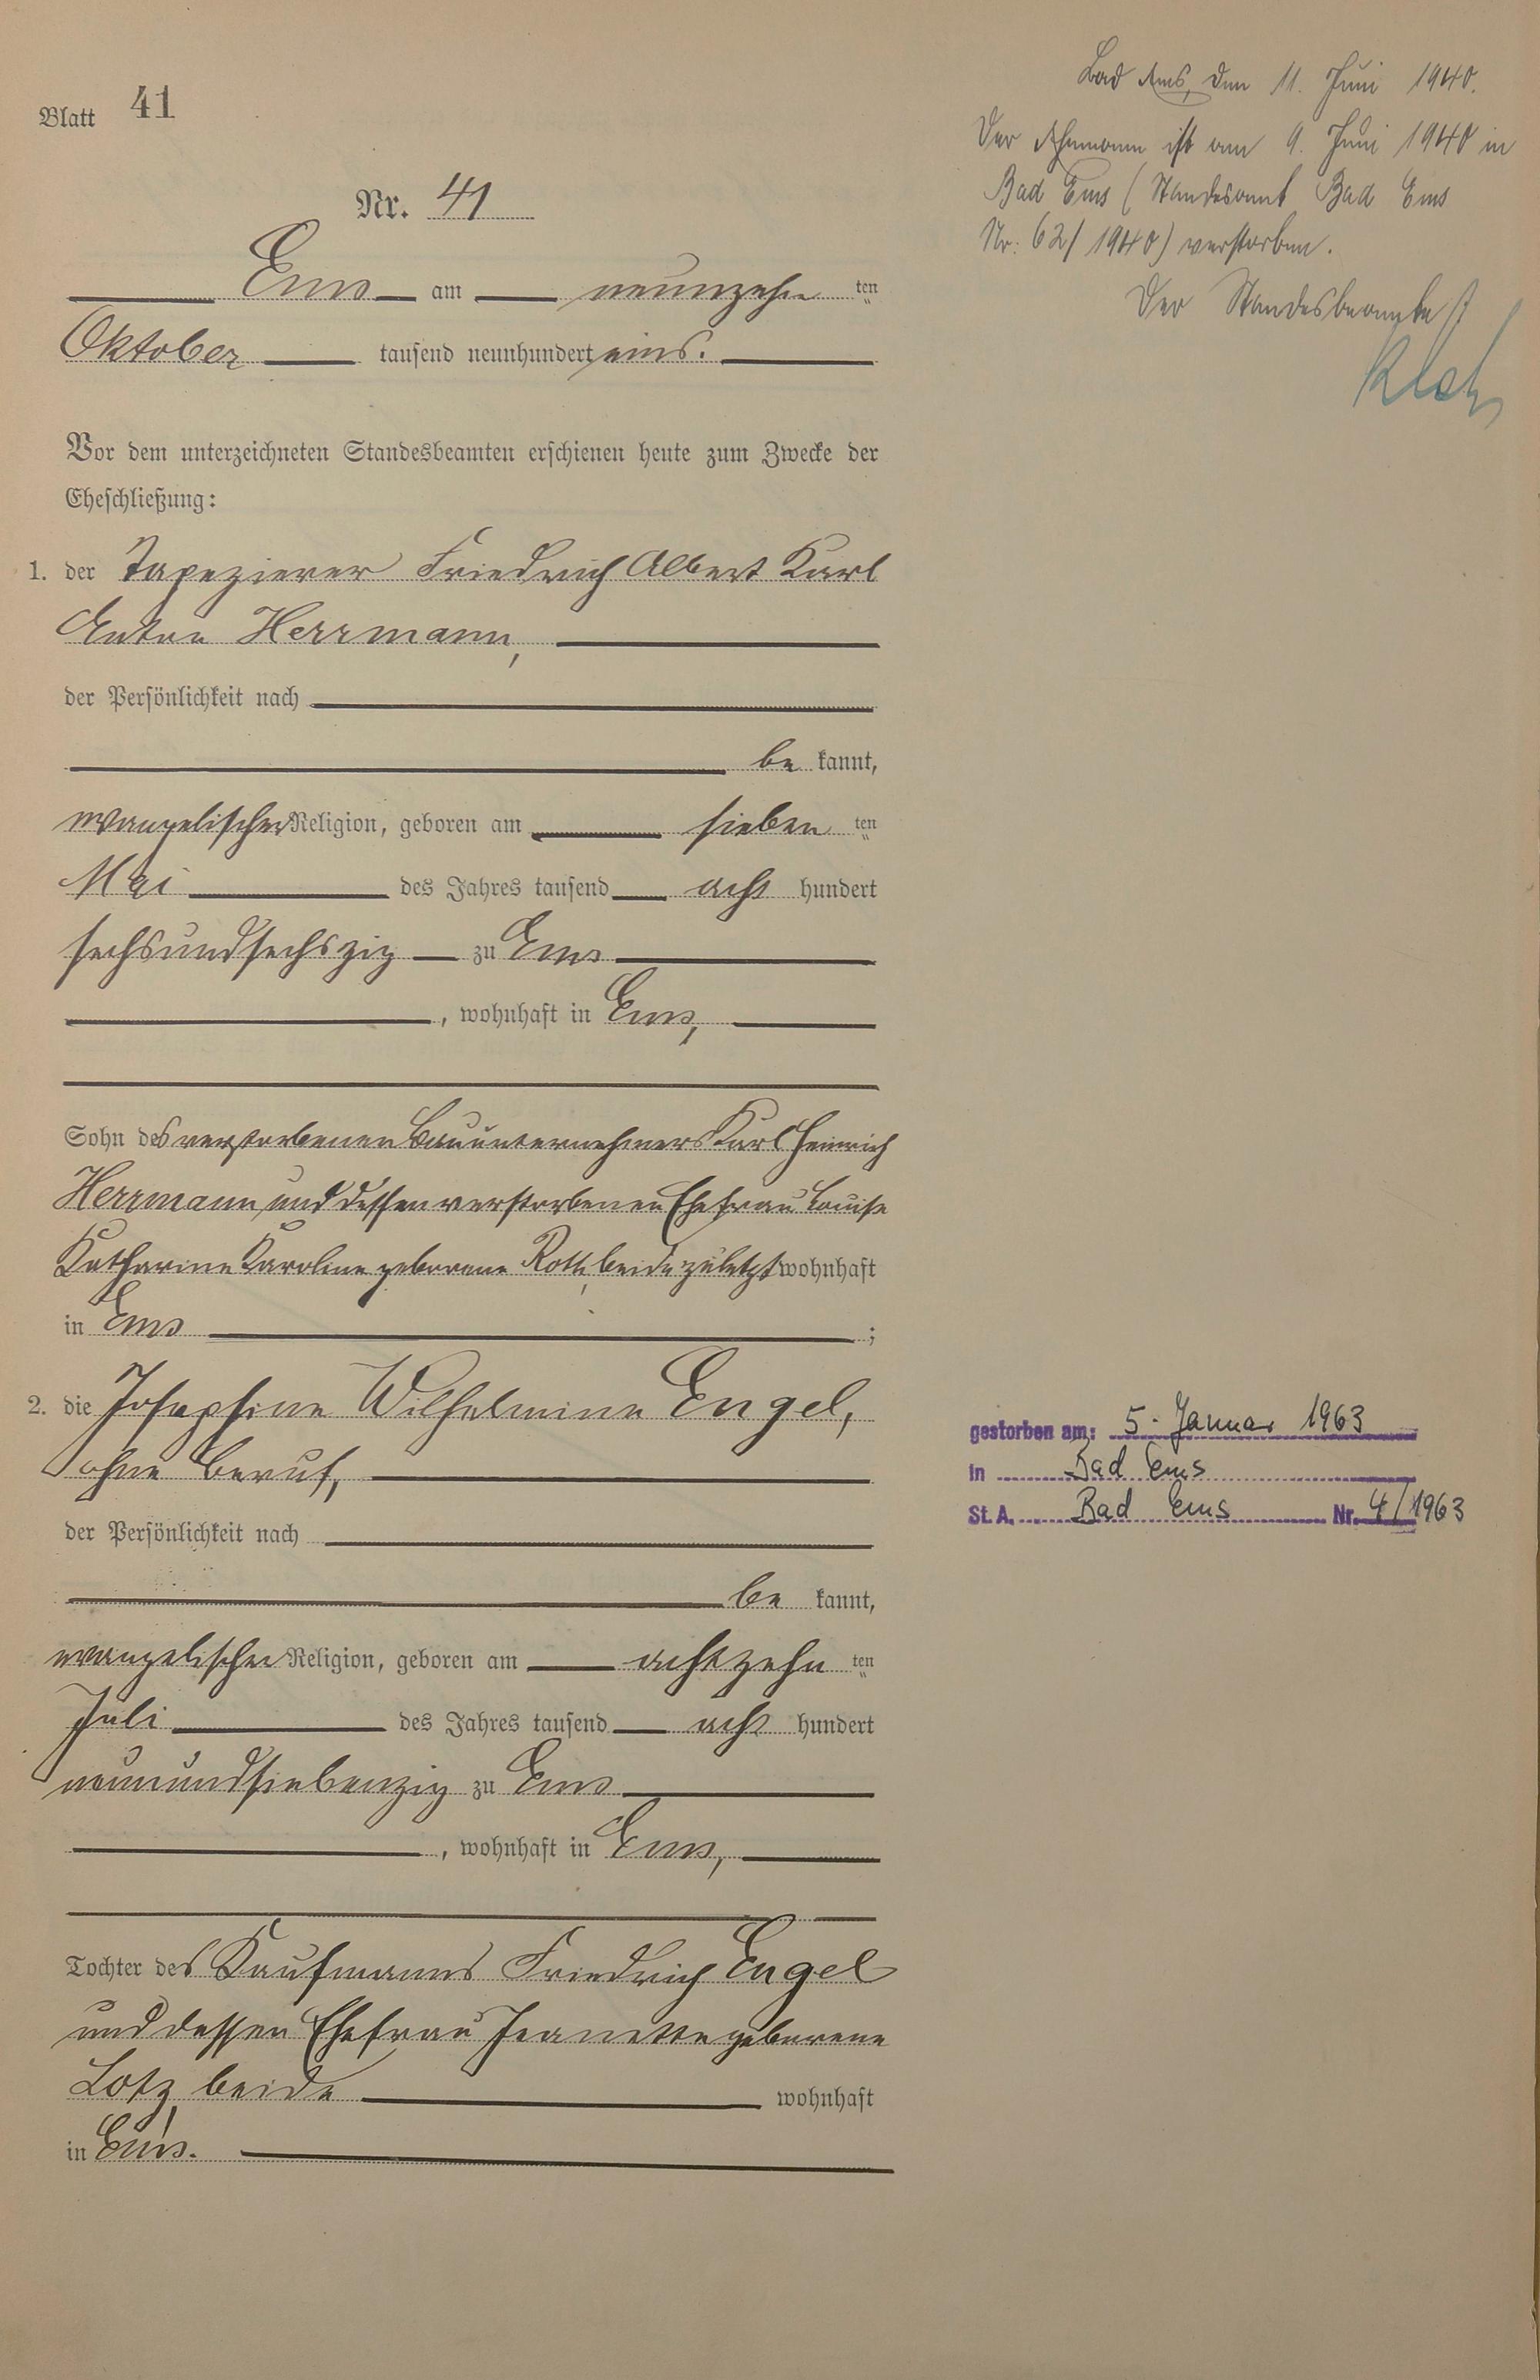 Blatt 41
Nr. 41
Ems am neunzehn ten
Oktober tausend neunhundert eins.
Vor dem unterzeichneten Standesbeamten erschienen heute zum Zwecke der
Eheschließung:
1. der Tapezierer Friedrich Albert Karl
Anton Herrmann,
der Persönlichkeit nach
be kannt,
evangelischer Religion, geboren am sieben ten
Mai des Jahres tausend acht hundert
sechsundsechszig zu Ems
, wohnhaft in Ems,
Sohn des verstorbenen Bauunternehmers Karl Heinrich
Herrmann und dessen verstorbenen Ehefrau Louise
Katharine Karoline geborene Roth, beide zuletzt wohnhaft
in Ems ;
2. die Josephine Wilhelmine Engel,
ohne Beruf,
der Persönlichkeit nach
be kannt,
evangelischer Religion, geboren am achtzehn ten
Juli des Jahres tausend acht hundert
neunundsiebenzig zu Ems
, wohnhaft in Ems,
Tochter des Kaufmanns Friedrich Engel
und dessen Ehefrau Jeanette geborene
Lotz, beide wohnhaft
in Ems.
Bad Ems, den 11. Juni 1940.
Der Ehemann ist am 9. Juni 1940 in
Bad Ems (Standesamt Bad Ems
Nr: 62/1940) verstorben.
Der Standesbeamte
gestorben am: 5. Januar 1963
in Bad Ems
St. A. Bad Ems Nr. 4/1963